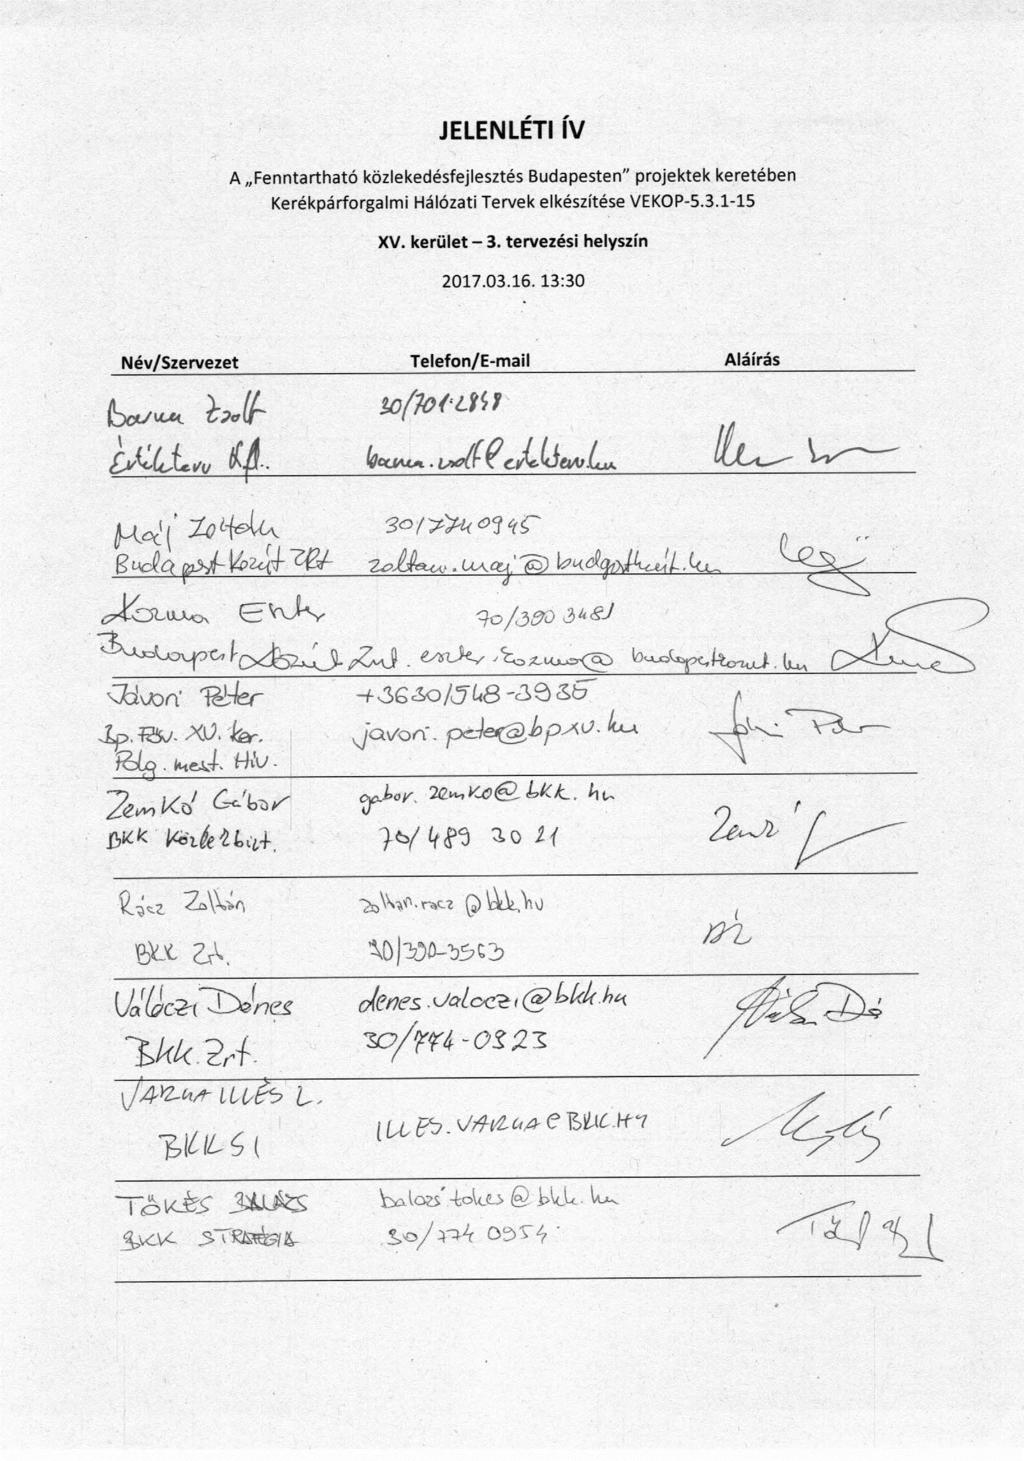 JELENLÉTI ÍV
A „Fenntartható közlekedésfejlesztés Budapesten” projektek keretében
Kerékpárforgalmi Hálózati Tervek elkészítése VEKOP-5.3.1-15
XV. kerület – 3. tervezési helyszín
2017.03.16. 13:30
Név/Szervezet Telefon/E-mail Aláírás
Barna Zsolt 30/701-2848
Értékterv Kft. barna.zsolt@ertekterv.hu
Máj Zoltán 30/7740945
Budapest Közút ZRt zoltan.maj@budapestkozut.hu
Kozma Eszter 70/390 3481
Budapest Közút Zrt. eszter.kozma@budapestkozut.hu
Jávori Péter +3630/548-3935
Bp. Főv. XV. ker. javori.peter@bpxv.hu
Polg. mest. Hiv.
Zemkó Gábor gabor.zemko@bkk.hu
BKK Közlekbizt. 70/489 30 21
Rácz Zoltán zoltan.racz@bkk.hu
BKK Zrt. 30/390-3563
Válóczi Dénes denes.valoczi@bkk.hu
BKK Zrt. 30/774-0323
VARGA ILLÉS L.
BKK SI ILLES.VARGA@BKK.HU
TŐKÉS BALÁZS balazs.tokes@bkk.hu
BKK STRATÉGIA 30/774 0954